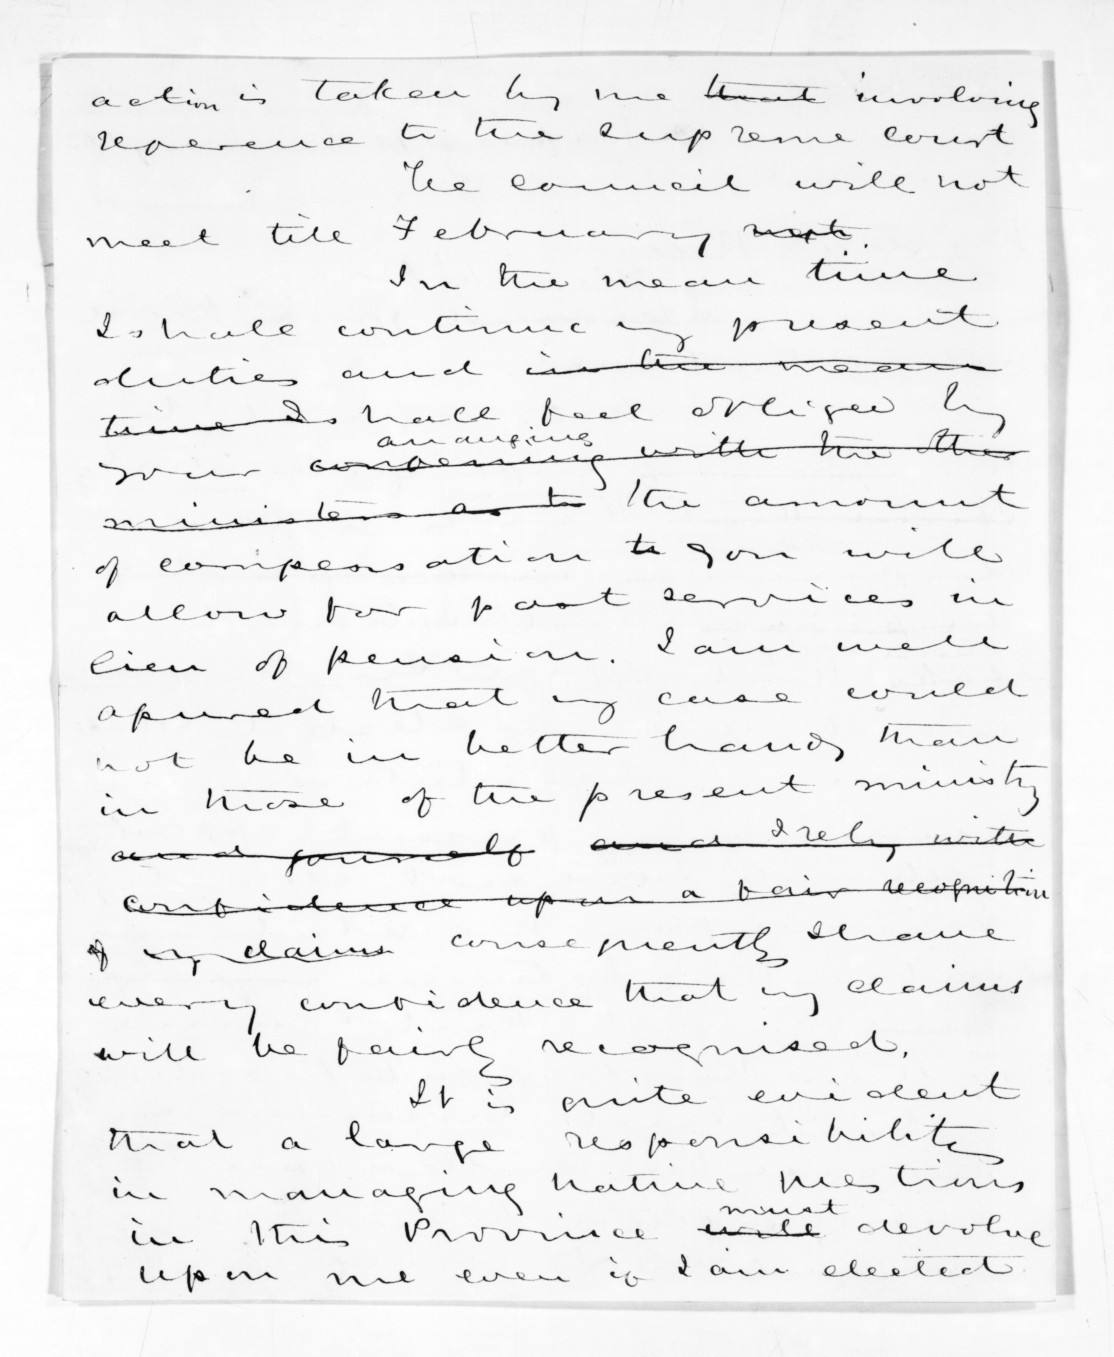 action is taken by me that involving
reference to the supreme court
The council will not
meet till February next.
In the mean time
I shall continue my present
duties and in the mean
time I shall feel obliged by
arranging
your conferring with the other
ministers as to the amount
of compensation to you will
allow for past services in
lieu of pension. I am well
assured that my case could
not be in better hands than
in those of the present ministry
and yourself and I rely with
confidence upon a fair recognition
of my claims consequently I have
every confidence that my claims
will be fairly recognised.
It is quite evident
that a large responsibility
in managing native questions
must
in this Province will devolve
upon me even if I am elected